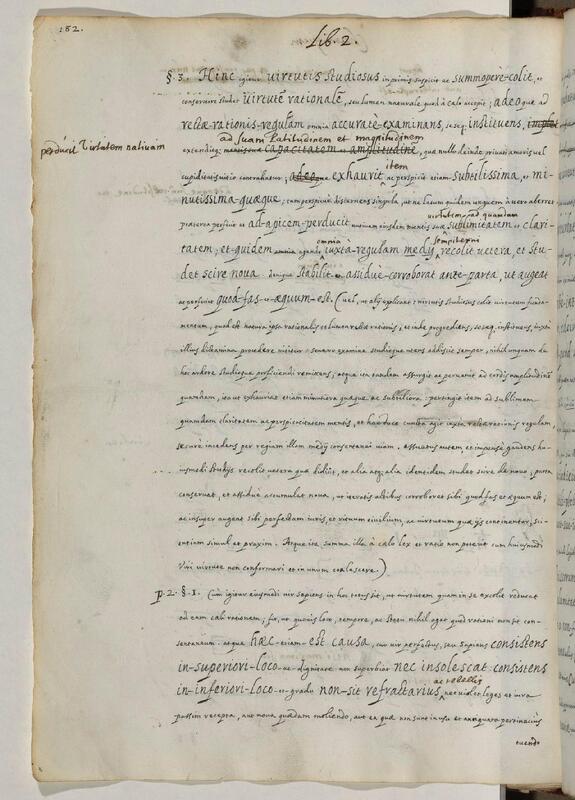 182.
Lib. 2.
§. 3. Hinc igitur virtutis Studiosus inprimis suspicit ac summopère-colit, et
conservare studet virtutē rationalē, seu lumen naturale quod à cælo accepit; adeoque ad
rectæ-rationis-regulam omnia accuratè-examinans, seseque instituens,
perducit virtutem nativam
ad suam latitudinem et magnitudinem
extenditque capacitatem et amplitudinē, quæ nulla inde privati amoris vel
item
cupiditatis vitio contrahatur; adeoque exhaurit ac perspicit etiam subtilissima, et mi-
nutissima-quæque; tam perspicuè discernens singula, ut ne latum quidem unguem à vero aberret
virtutem ad quandam
præterea perficit ac ad-apicem-perducit nativam ejusdem mentis suæ sublimitatem et clari-
omnia sempiterni
tatem; et quidem omnia agendo iuxtà-regulam medij recolit vetera, et stu-
det scire nova. denique stabilit et assiduè-corroborat ante-parta, ut augeat
ac perficiat quod-fas-et-æquum-est. (vel, ut alij explicant: virtutis studiosus colit virtutum funda-
mentum, quod est natura ipsa rationalis et lumen rectæ rationis; et inde progrediens, seseque instituens, iuxtà
illius dictamina procedere nititur: severo examine studioque utens addiscit semper, nihil unquam de
hoc ardore studioque proficiendi remittens; atque ita tandem assurgit ac pervenit ad cordis amplitudinē
quandam, ita ut exhauriat etiam minutiora quæque ac subtiliora: pertingit item ad sublimem
quandam claritatem ac perspicacitatem mentis, et hac duce cuncta agit iuxta rectæ rationis regulam,
securè incedens per regiam illam medij consectanei viam. assuetus autem, et impensè gaudens hu-
iusmodi studijs recolit vetera quæ didicit, et alia atque alia identidem studet scire de novo; parta
conservat, et assiduè accumulat nova, ut iteratis actibus corroboret sibi quod fas et æquum est;
ac insuper augeat sibi perfectam iuris, et rituum civilium, ac virtutum quæ ijs continentur, sci-
entiam simul et praxim. Atque ita summa illa à cælo lex et ratio non poterit cum huiusmodi
Viri virtute non conformari et in unum coalescere.)
p. 2. §. 1. Cum igitur eiusmodi vir sapiens in hoc totus sit, ut virtutem quam in se excolit reducat
ad eam cæli rationem; fit, ut quovis loco, tempore, ac statu nihil agat quod rationi non sit con-
sentaneum. atque hæc-etiam-est causa, cur vir perfectus, seu Sapiens consistens
in-superiori-loco-ac dignitate non superbiat nec insolescat: consistens
ac rebellis
in-inferiori-loco-et gradu non-sit refractarius nec violet leges et iura
passim recepta, aut nova quædam moliendo, aut ea quæ non sunt in usu et antiquata pertinaciùs
tuendo